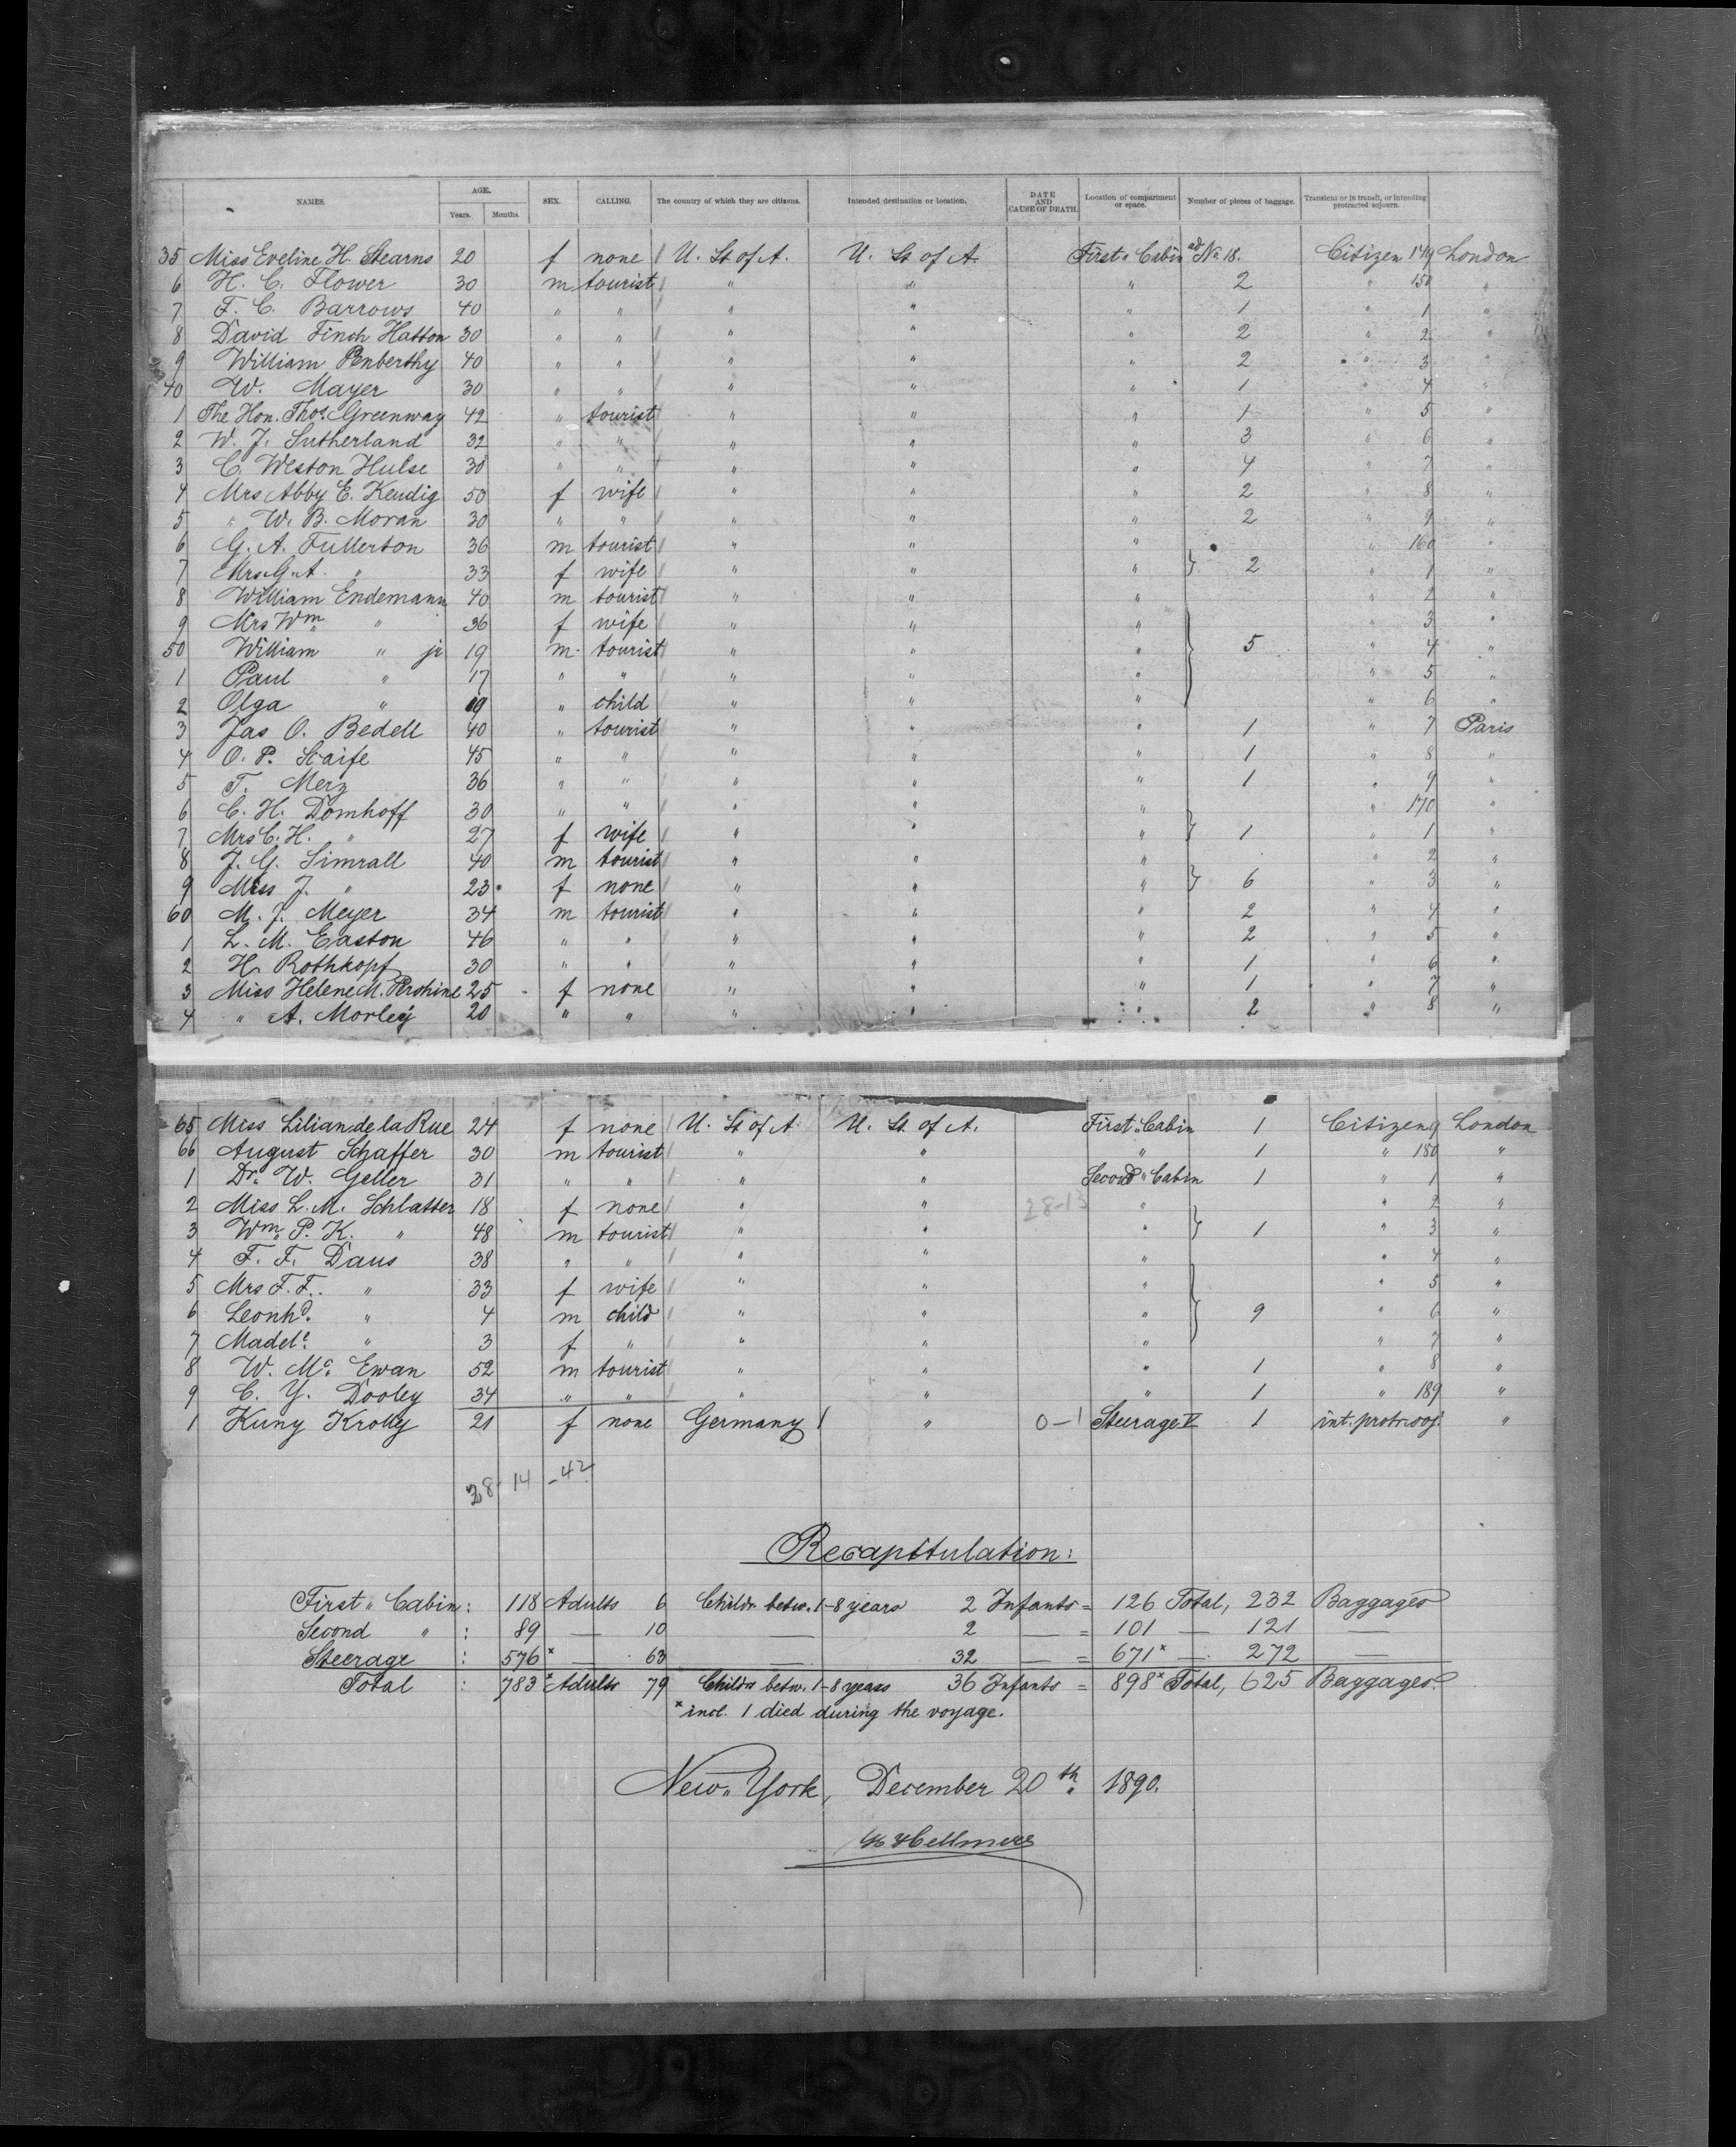 NAMES. AGE. Years. Months. SEX. CALLING. The country of which they are citizens. Intended destination or location. DATE AND CAUSE OF DEATH. Location of compartment or space. Number of pieces of baggage. Transient or in transit, or intending protracted sojourn.
35 Miss Eveline H. Stearns 20 f none U. St of A. U. St of A. First " Cabin ad No 18. Citizen 149 London
6 H. C. Flower 30 m tourist " " " 2 " 150 "
7 F. C. Barrows 40 " " " " " 1 " 1 "
8 David Finch Hatton 30 " " " " " 2 " 2 "
9 William Penberthy 40 " " " " " 2 " 3 "
40 W. Mayer 30 " " " " " 1 " 4 "
1 The Hon. Thos. Greenway 42 " tourist " " " 1 " 5 "
2 W. J. Sutherland 32 " " " " " 3 " 6 "
3 C. Weston Hulse 30 " " " " " 4 " 7 "
4 Mrs Abby E. Kendig 50 f wife " " " 2 " 8 "
5 " W. B. Moran 30 " " " " " 2 " 9 "
6 G. A. Fullerton 36 m tourist " " " " 160 "
7 Mrs G. A. " 33 f wife " " " } 2 " 1 "
8 William Endemann 40 m tourist " " " " 2 "
9 Mrs Wm " 36 f wife " " " " 3 "
50 William " jr 19 m. tourist " " " } 5 " 4 "
1 Paul " 17 " " " " " " 5 "
2 Olga " 9 " child " " " " 6 "
3 Jas O. Bedell 40 " tourist " " " 1 " 7 Paris
4 O. P. Scaife 45 " " " " " 1 " 8 "
5 T. Merz 36 " " " " " 1 " 9 "
6 C. H. Domhoff 30 " " " " " " 170 "
7 Mrs C. H. " 27 f wife " " " } 1 " 1 "
8 J. G. Simrall 40 m tourist " " " " 2 "
9 Miss J. " 23 f none " " " } 6 " 3 "
60 M. J. Meyer 34 m tourist " " " 2 " 4 "
1 L. M. Easton 46 " " " " " 2 " 5 "
2 H. Rothkopf 30 " " " " " 1 " 6 "
3 Miss Helene M. Pershine 25 f none " " " 1 " 7 "
4 " A. Morley 20 " " " " " 2 " 8 "
65 Miss Lilian de la Rue 24 f none U. St of A. U. St. of A. First " Cabin 1 Citizen 9 London
66 August Schaffer 30 m tourist " " " 1 " 180 "
1 Dr. W. Geller 31 " " " " Second " Cabin 1 " 1 "
2 Miss L. M. Schlatter 18 f none " " 28-13 " " 2 "
3 Wm P. K. " 48 m tourist " " " } 1 " 3 "
4 F. F. Daus 38 " " " " " " 4 "
5 Mrs F. F. " 33 f wife " " " " 5 "
6 Leonhd. " 4 m child " " " } 9 " 6 "
7 Madele. " 3 f " " " " " 7 "
8 W. Mc. Ewan 52 m tourist " " " 1 " 8 "
9 C. Y. Dooley 34 " " " " " 1 " 189 "
1 Kuny Krolly 21 f none Germany " 0-1 Steerage V 1 int. protr. soj. "
28-14-42
Recapitulation:
First " Cabin: 118 Adults 6 Childr. betw. 1-8 years 2 Infants = 126 Total, 232 Baggages
Second " : 89 — 10 — 2 — = 101 — 121 —
Steerage : 576* — 63 — 32 — = 671* — 272 —
Total : 783* Adults 79 Childrn betw. 1-8 years 36 Infants = 898* Total, 625 Baggages.
* incl. 1 died during the voyage.
New " York, December 20th. 1890.